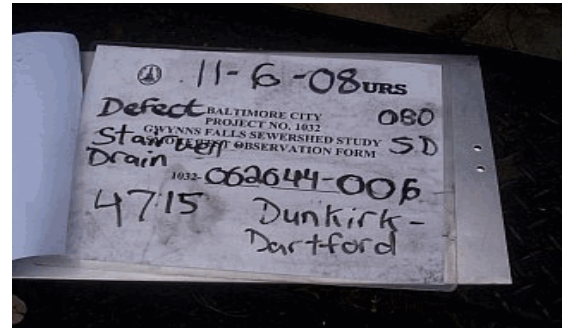 11-6-08 URS
Defect BALTIMORE CITY 080
PROJECT NO. 1032
Stairwell GWYNNS FALLS SEWERSHED STUDY SD
OBSERVATION FORM
Drain
1032-062644-006
4715 Dunkirk-
Dartford